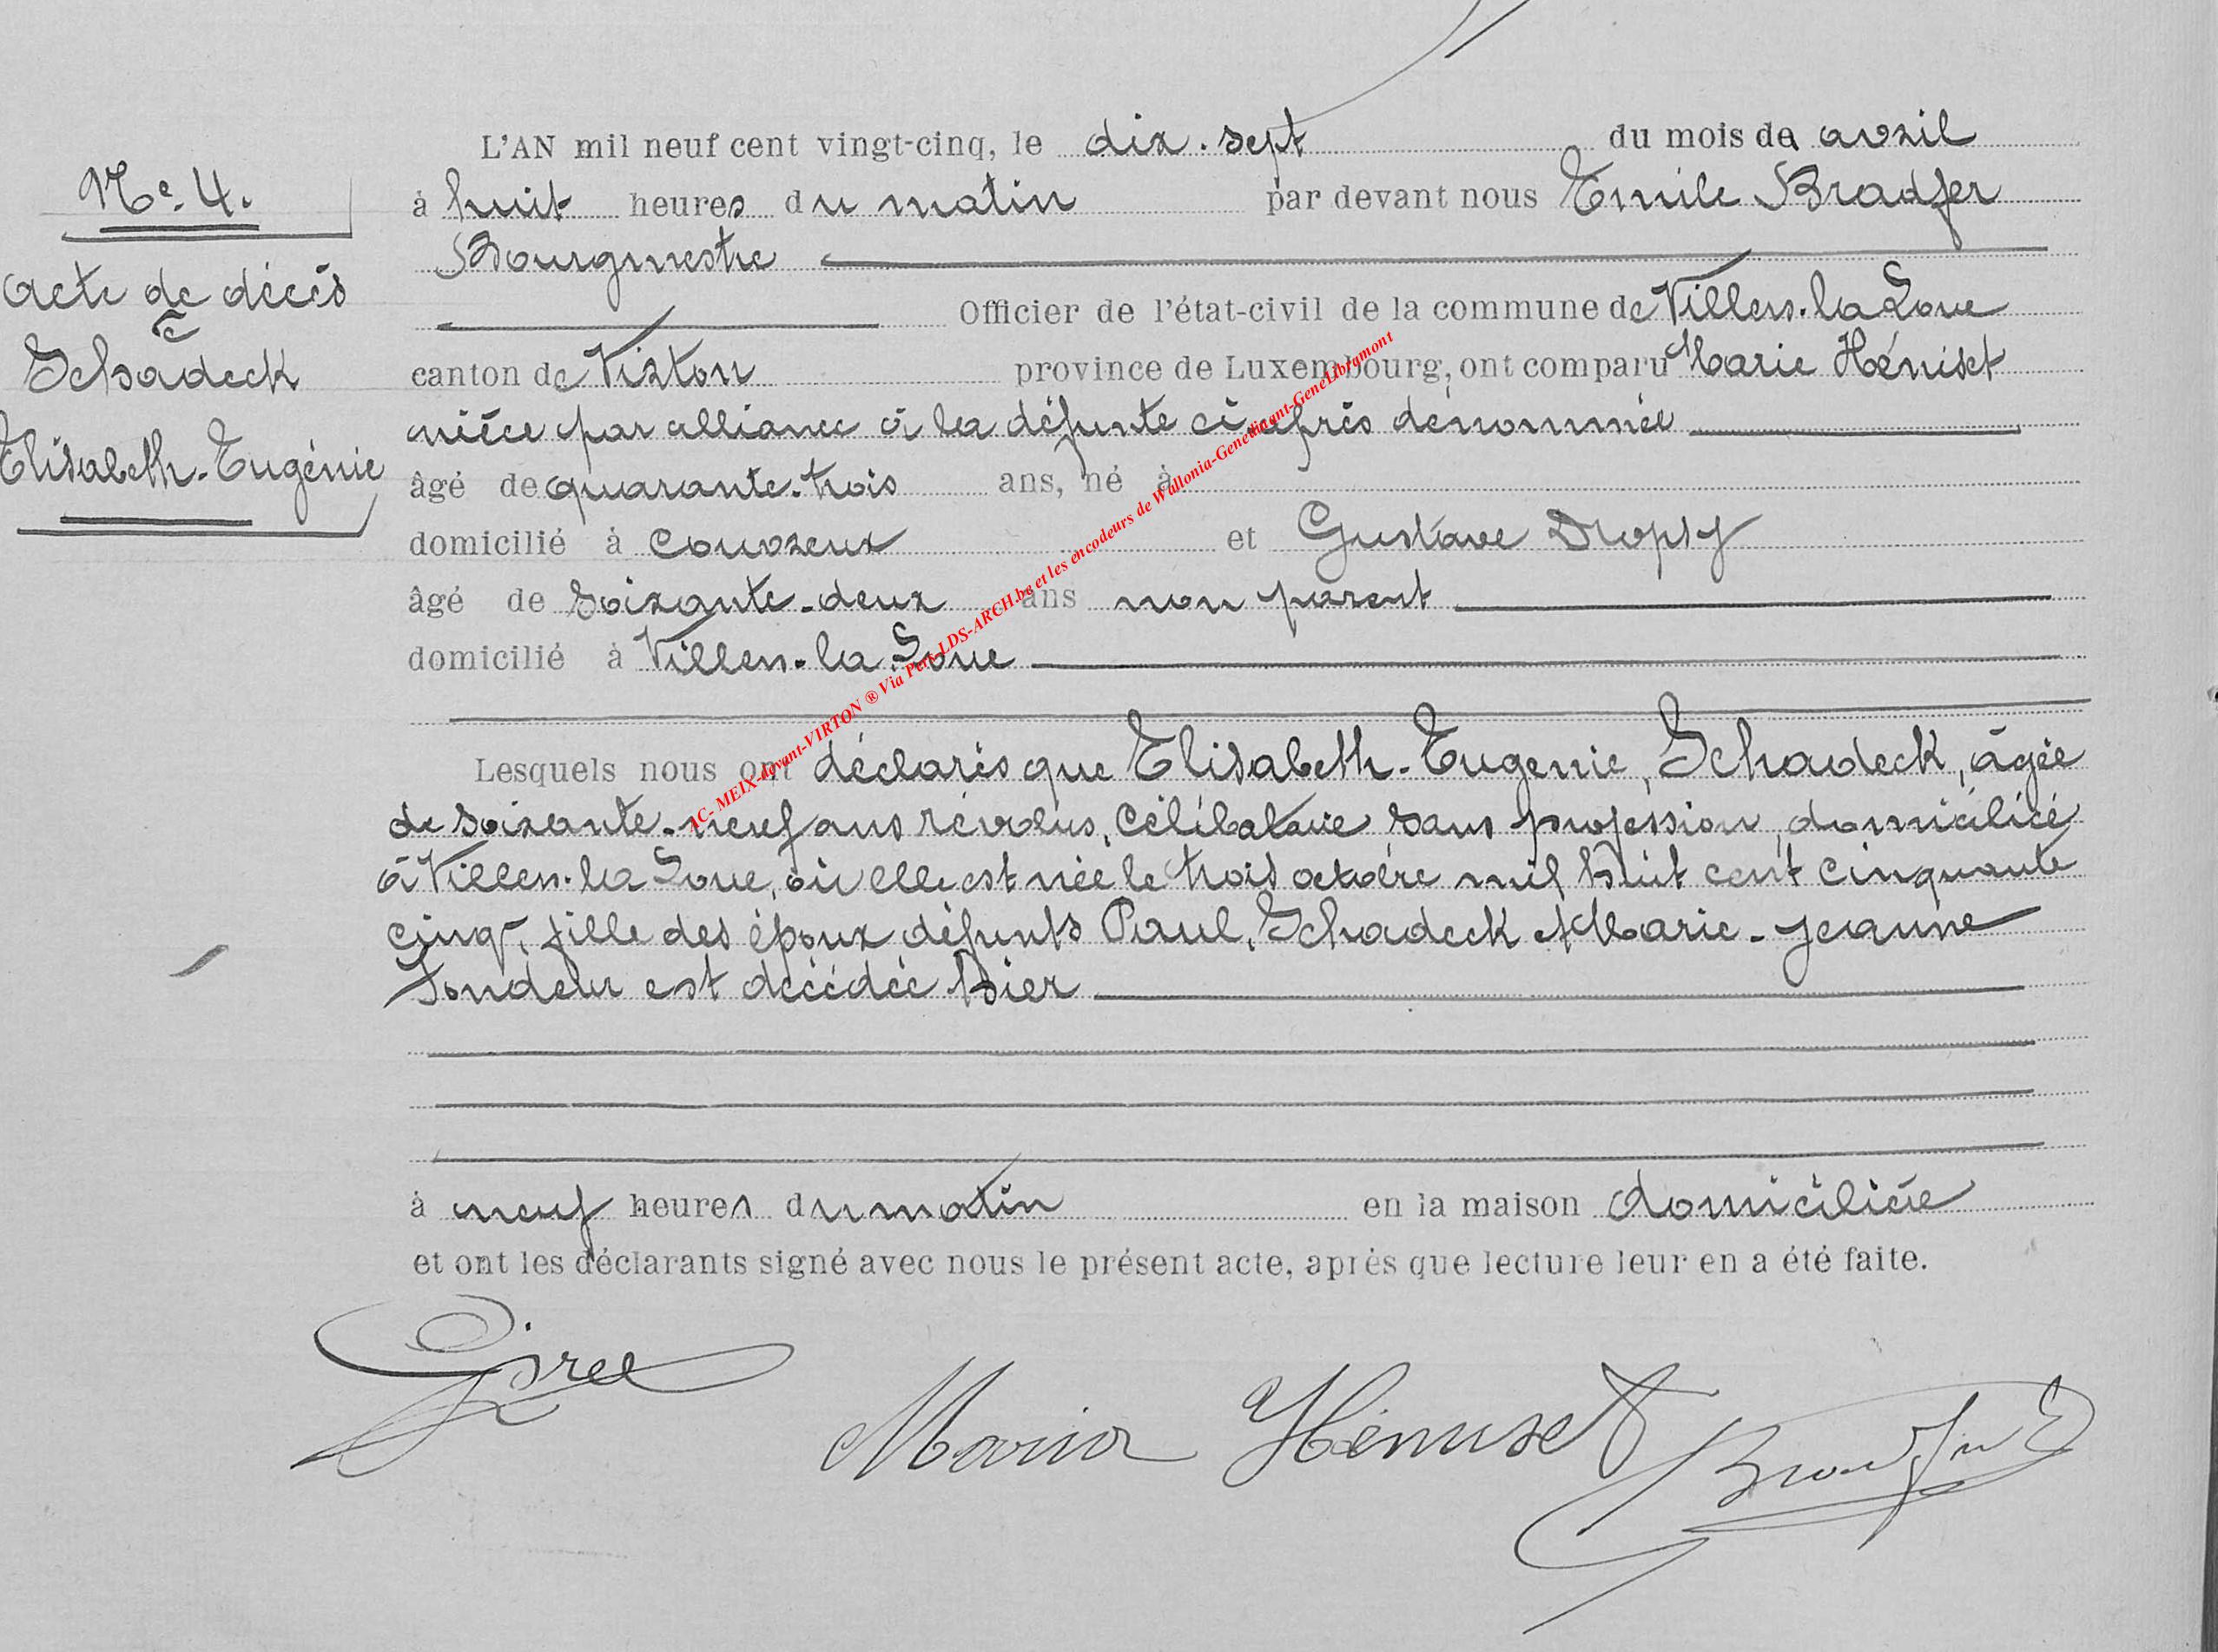 L'AN mil neuf cent vingt-cinq, le dix-sept du mois de avril
N° 4.
à huit heures du matin par devant nous Emile Bradfer
Bourgmestre
Acte de décès
Officier de l'état-civil de la commune de Villers-la-Loue
Schadeck
canton de Virton province de Luxembourg, ont comparu Marie Héniset
nièce par alliance à la défunte ci-après dénommée
Elisabeth-Eugénie
âgé de quarante-trois ans, né à
domicilié à Couvreux et Gustave Dropsy
âgé de soixante-deux ans non parent
domicilié à Villers-la-Loue
Lesquels nous ont déclarés que Elisabeth-Eugenie, Schadeck, âgée
de soixante-neuf ans révolus, célibataire sans profession, domiciliée
à Villers-la-Loue, où elle est née le trois octobre mil huit cent cinquante
cinq, fille des époux défunts Paul, Schadeck et Marie-Jeanne
Fondeur est décédée hier
à neuf heures du matin en la maison domicilière
et ont les déclarants signé avec nous le présent acte, après que lecture leur en a été faite.
Maria Hénuset
Bradfer E
AC- MEIX-devant-VIRTON ® Via Pers-LDS-ARCH.be et les encodeurs de Wallonia-Genedinant-GeneLibramont